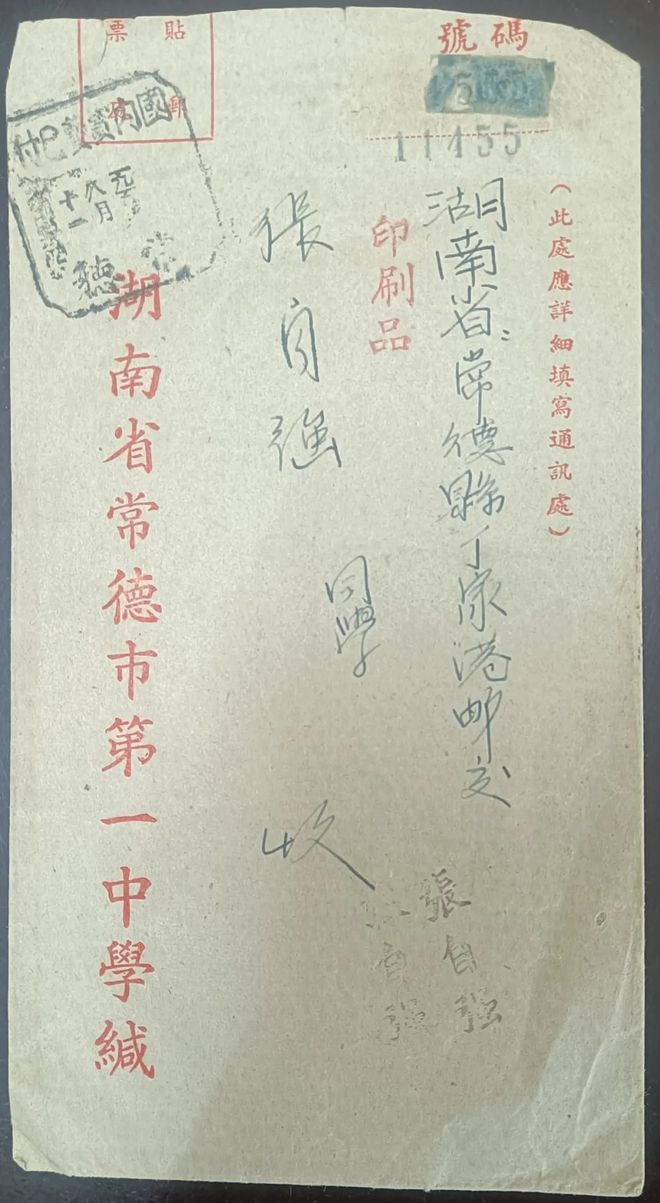 號碼
11455
（此處應詳細填寫通訊處）
湖南省：常德縣丁家港郵交
印刷品
張自强
同學
收
張自强
自强
貼郵
票處
國內資已付
九月
十一
常德
湖南省常德市第一中學緘